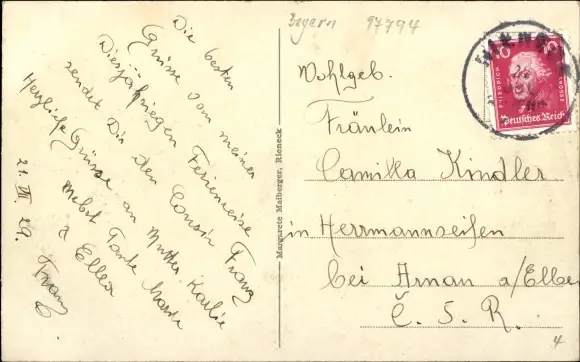 Bayern 97794
Die besten
Grüsse von meiner
Diesjährigen Ferienreise
sendet Dir dein Cousin Franz
Herzliche Grüsse an Mutter, Karlie
nebst Tante Marie
& Ella
21. VII. 29. Franz
Margarete Malberger, Rieneck
Wohlgeb.
Fräulein
Camilla Kindler
in Herrmannseifen
bei Arnau a/Elbe
Č. S. R.
4
10 10
FRIEDRICH
Deutsches Reich